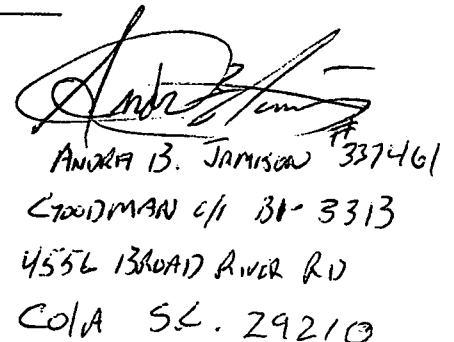 Andra B. Jamison #337461
Goodman C/I B1-3313
4556 Broad River RD
Cola S.C. 29210